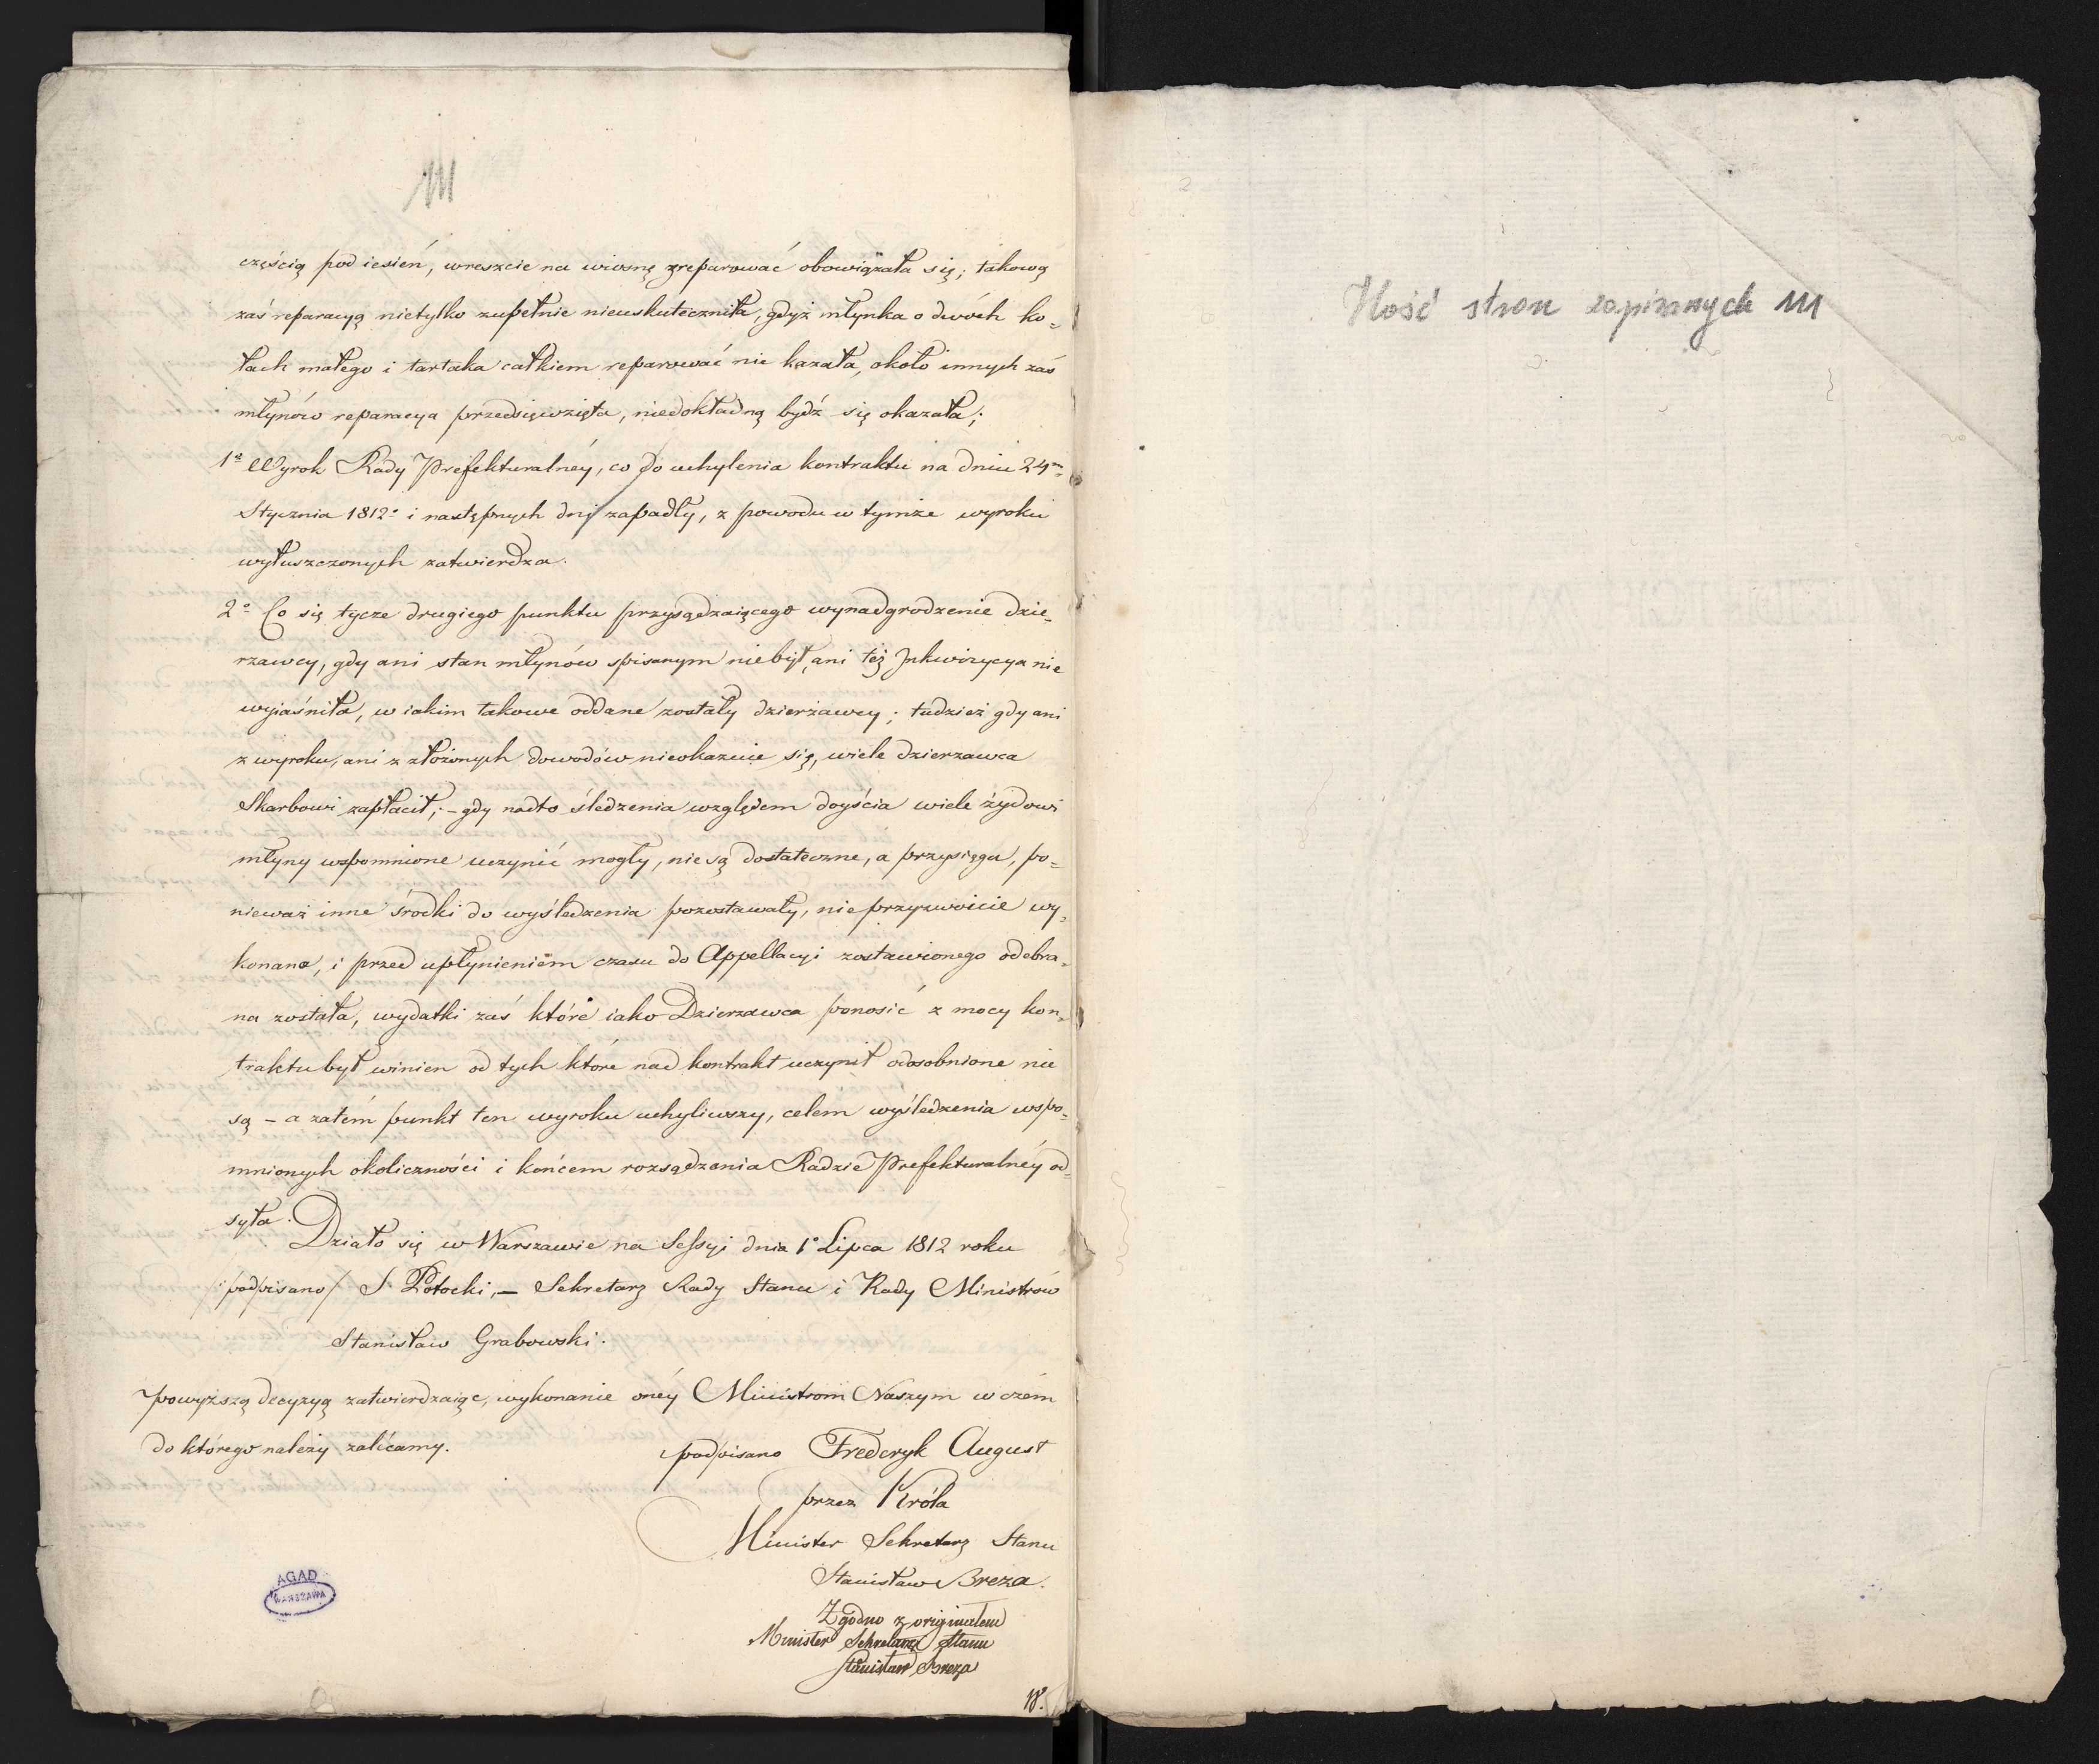 111
częścią pod iesień, wreszcie na wiosnę zreparować obowiązała się; takową
zaś reparacyą nietylko zupełnie nieuskuteczniła, gdyż młynka o dwóch ko=
łach małego i tartaka całkiem reparować nie kazała, około innych zaś
młynów reparacya przedsięwzięta, niedokładną bydź się okazała;
1º Wyrok Rady Prefekturalnéy, co do uchylenia kontraktu na dniu 24m
Stycznia 1812º i następnych dni zapadły, z powodu w tymże wyroku
wyłuszczonych zatwierdza.
2º Co się tycze drugiego punktu przysądzaiącego wynadgrodzenie dzie=
rzawcy, gdy ani stan młynów spisanym niebył, ani też Inkwizycya nie
wyiaśniła, w iakim takowe oddane zostały dzierżawcy; tudzież gdy ani
z wyroku, ani z złożonych dowodów nieokazuie się, wiele dzierzawca
Skarbowi zapłacił; - gdy nadto śledzenia względem doyścia wiele żydowi
młyny wspomnione uczynić mogły, nie są dostateczne, a przysięga, po=
nieważ inne środki do wyśledzenia pozostawały, nieprzyzwoicie wy=
konana, i przed upłynieniem czasu do Appellacyi zostawionego odebra=
na została, wydatki zaś które iako Dzierzawca ponosić z mocy kon=
traktu był winien od tych które nad kontrakt uczynił odosobnione nie
są - a zatém punkt ten wyroku uchyliwszy, celém wyśledzenia wspo=
mnionych okoliczności i końcem rozsądzenia Radzie Prefekturalnéy od=
syła.
Działo się w Warszawie na Sessyi dnia 1º Lipca 1812 roku
/podpisano/ S Potocki, - Sekretarz Rady Stanu i Rady Ministrów
Stanisław Grabowski.
Powyższą decyzyą zatwierdzaiąc, wykonanie onéy Ministrom Naszym w czém
do którego należy zalécamy.
podpisano Frederyk August
przez Króla
Minister Sekretarz Stanu
Stanisław Breza.
Zgodno z originałem
Minister Sekretarz Stanu
Stanisław Breza
AGAD
WARSZAWA
Ilość stron zapisanych 111